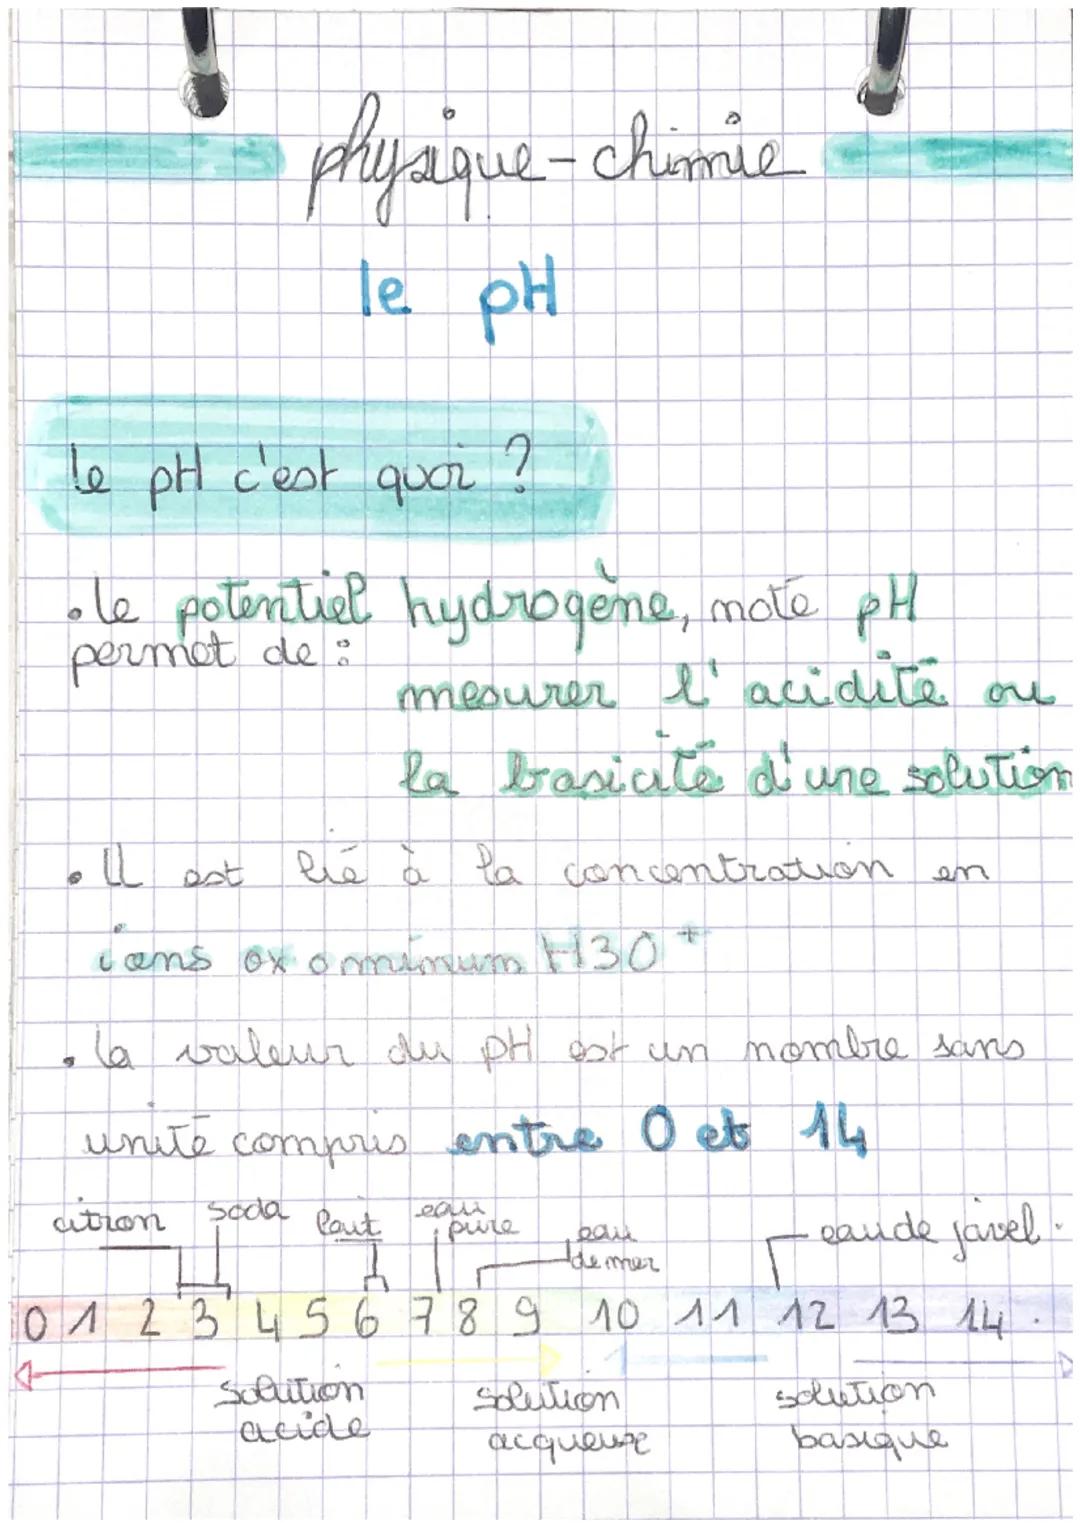 physique-chimie
le pH
le pH c'est quoi ?
• le potentiel hydrogène, noté pH
permet de :
mesurer l'acidité ou
la basicité d'une solution
• Il est lié à la concentration en
ions oxominum H3O+
• la valeur du pH est un nombre sans
unité compris entre 0 et 14
citron soda lait eau pure eau de mer eau de javel.
0 1 2 3 4 5 6 7 8 9 10 11 12 13 14.
solution acide solution acqueuse solution basique